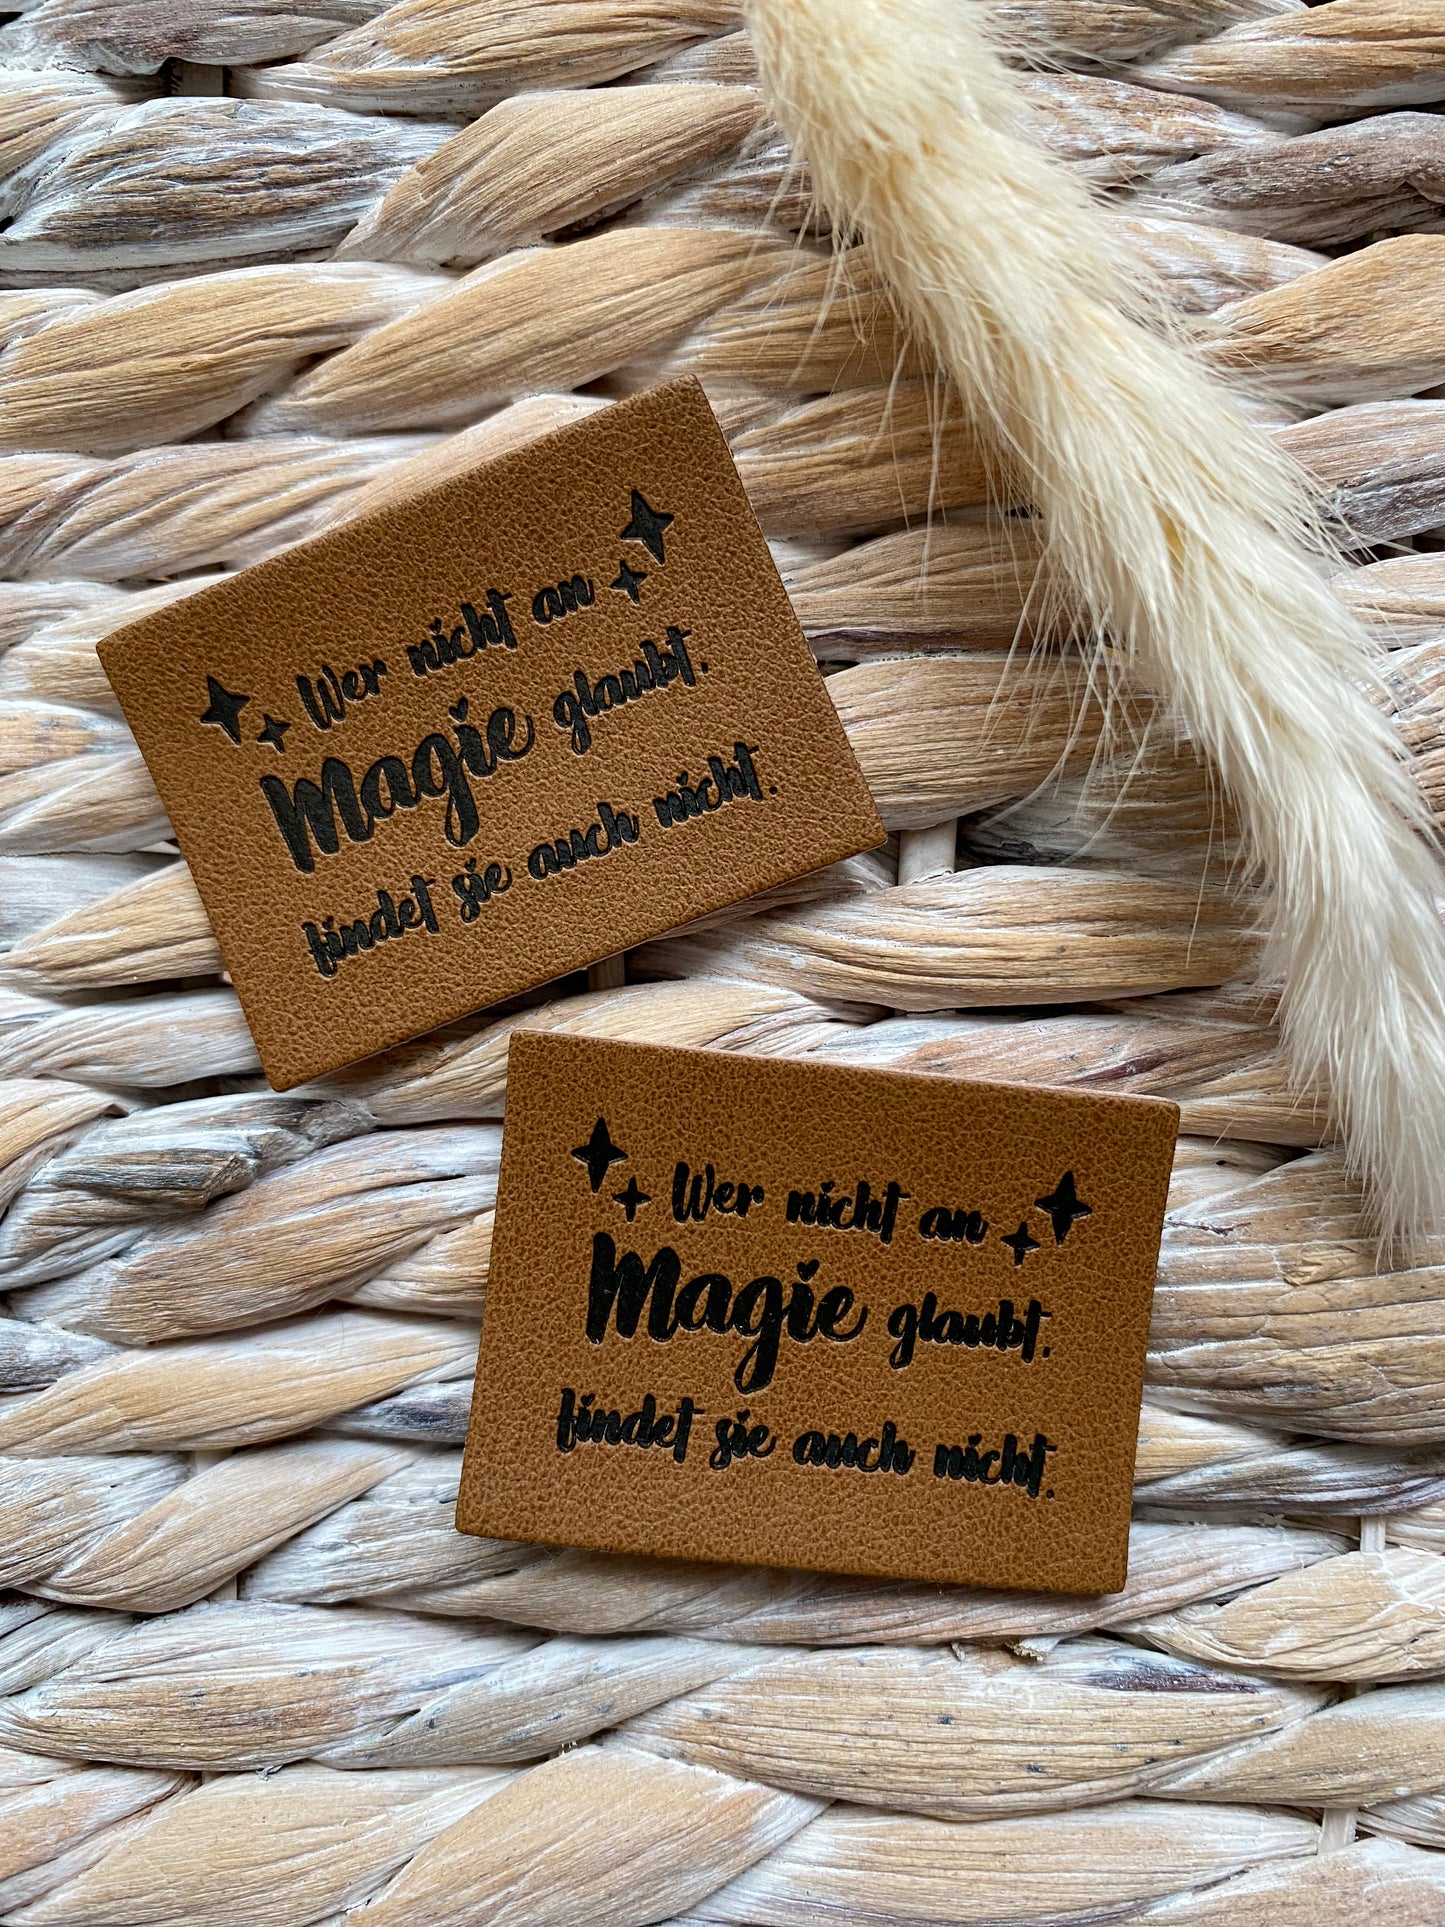 Wer nicht an
Magie glaubt,
findet sie auch nicht.
Wer nicht an
Magie glaubt,
findet sie auch nicht.